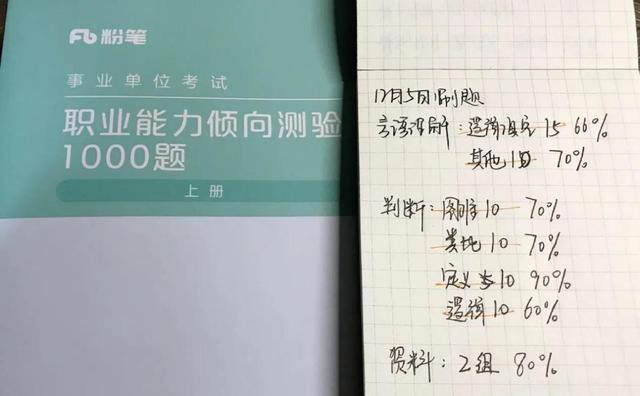 粉笔
事业单位考试
职业能力倾向测验
1000题
上册
12月5日刷题
言语理解:逻辑填空 15 66%
其他 10 70%
判断:图推 10 70%
类比 10 70%
定义 10 90%
逻辑 10 60%
资料:2组 80%